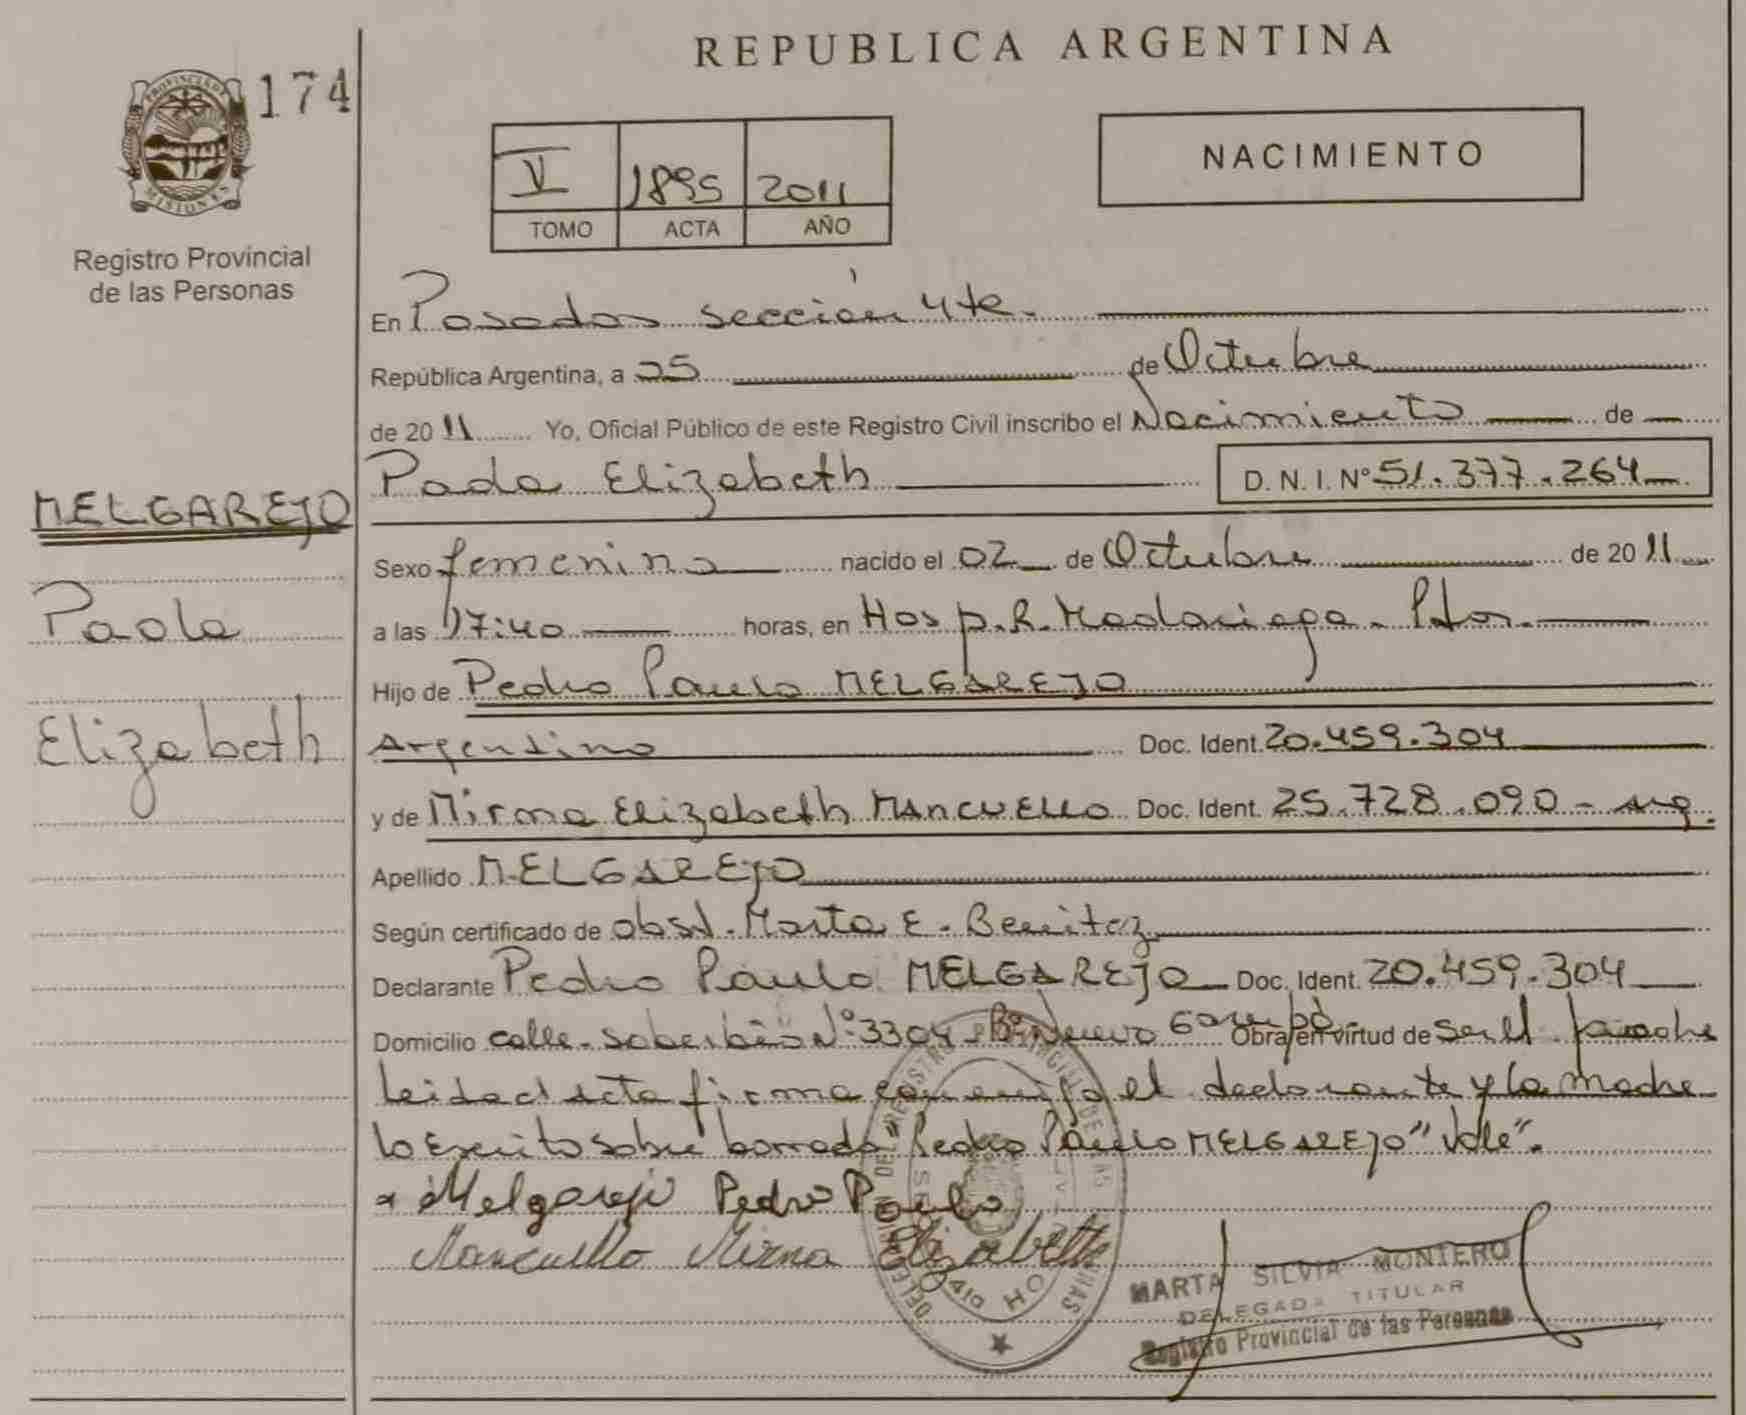 REPUBLICA ARGENTINA
PROVINCIA DE MISIONES
174
Registro Provincial
de las Personas
V 1895 2011
TOMO ACTA AÑO
NACIMIENTO
En Posadas sección 4ta.
República Argentina, a 25 de Octubre
de 2011 Yo, Oficial Público de este Registro Civil inscribo el Nacimiento de
Paola Elizabeth D.N.I. Nº 51.377.264
MELGAREJO
Paola
Elizabeth
Sexo femenino nacido el 02 de Octubre de 2011
a las 17:40 horas, en Hosp. R. Madariaga.
Hijo de Pedro Paulo MELGAREJO
Argentino Doc. Ident. 20.459.304
y de Mirna Elizabeth MANCUELLO Doc. Ident. 25.728.090 - arg.
Apellido MELGAREJO
Según certificado de obst. Marta E. Benitez
Declarante Pedro Paulo MELGAREJO Doc. Ident. 20.459.304
Domicilio calle Nº 3304 Bº Nuevo Obra en virtud de
Leida el Acta firma conmigo el declarante y la madre
lo Escrito sobre borrado "Pedro Paulo MELGAREJO" Vale".
Melgarejo Pedro Paulo
Mancuello Mirna Elizabeth
MARTA SILVIA MONTERO
DELEGADA TITULAR
Registro Provincial de las Personas